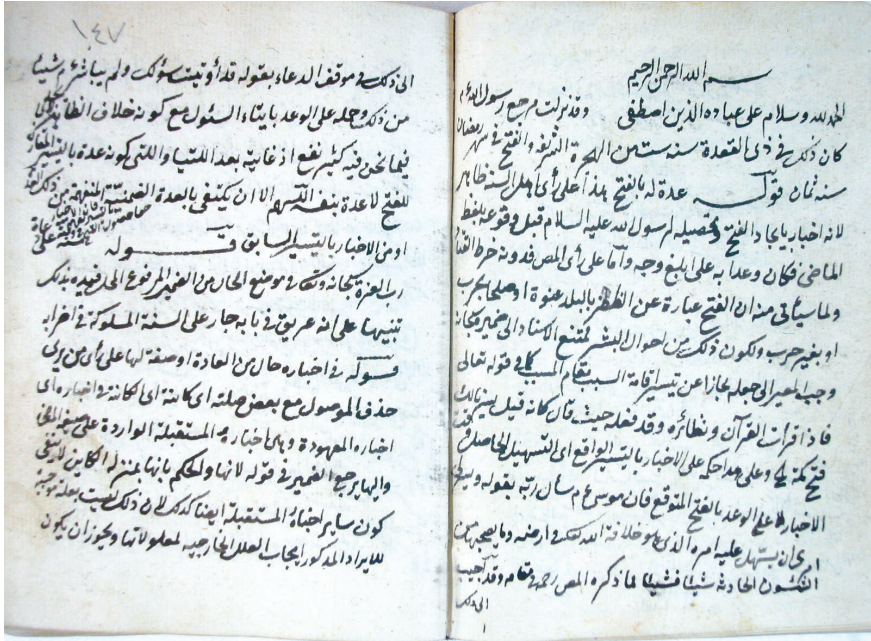 بسم الله الرحمن الرحيم
الحمد لله وسلام على عباده الذين اصطفى وقد نزلت مرجع رسول الله عم
كان ذلك فى ذى القعدة سنه ست من الهجرة الشريفة والفتح فى شهر رمضان
سنه ثمان قوله عدة له بالفتح هذا على رأى اهل السنه ظاهر
لانه اخبار بايجاد الفتح وتحصيله لرسول الله عليه السلام قبل وقوعه بلفظ
الماضى فكان وعدا به على ابلغ وجه واما على رأى المص فدونه خرط القتاد
ولما سيأتى منه ان الفتح عبارة عن الظفر بالبلد عنوة او صلحا بحرب
او بغير حرب ولكون ذلك من احوال البشر يمتنع اسناده الى ضميره سبحانه
وجب المصير الى جعله مجازا عن تيسيره اقامة السبب مقام المسبب كما فى قوله تعالى
فاذا قرأت القرآن ونظائره وقد فعله حيث قال كانه قيل يسرنا لك
فتح مكة وعلى هذا حكمه على الاخبار بالتيسير الواقع اى التسهيل الحاصل
الاخبار على الوعد بالفتح المتوقع فان موسى عم سأل ربه بقوله ويسر لى
امرى ان يسهل عليه امره الذى هو خلافة الله فى ارضه وما يصحبها من
الشئون الحادثه شيئا فشيئا لما ذكره المص رحمه فى مقامه وقد اجيب
الى ذلك
١٤٧
الى ذلك فى موقف الدعاء بقوله قد أوتيت سؤلك ولم يباشر عم شيئا
من ذلك وحمله على الوعد بايتاء السئول مع كونه خلاف الظاهر
فيما نحن فيه كثير نفع اذ غايته بعد اللتيا واللتى كونه عدة بالتيسير المقارن
للفتح لا عدة بنفسه اللهم الا ان يكتفى بالعدة الضمنية المنفهمة من
او من الاخبار بالتيسير السابق قوله
رب العزة سبحانه وتعالى فى موضع الحال من الضمير المرفوع الى قيده بذلك
تنبيها على انه عريق فى بابه جار على السنة المسلوكة فى اخباره
قوله فى اخباره حال من العادة او صفة لها على رأى من يرى
حذف الموصول مع بعض صلته اى كائنة او الكائنة فى اخباره اى
اخباره المعهودة وهى اخباره المستقبلة الواردة على صيغة الماضى
واليها يرجع الضمير فى قوله لانها والحكم بانها بمنزلة الكائن لا يقتضى
كون سائر اخباره المستقبلة ايضا كذلك لان ذلك ليست بعلة موجبة
للايراد المذكور ايجاب العلل الخارجيه لمعلولاتها ويجوز ان يكون